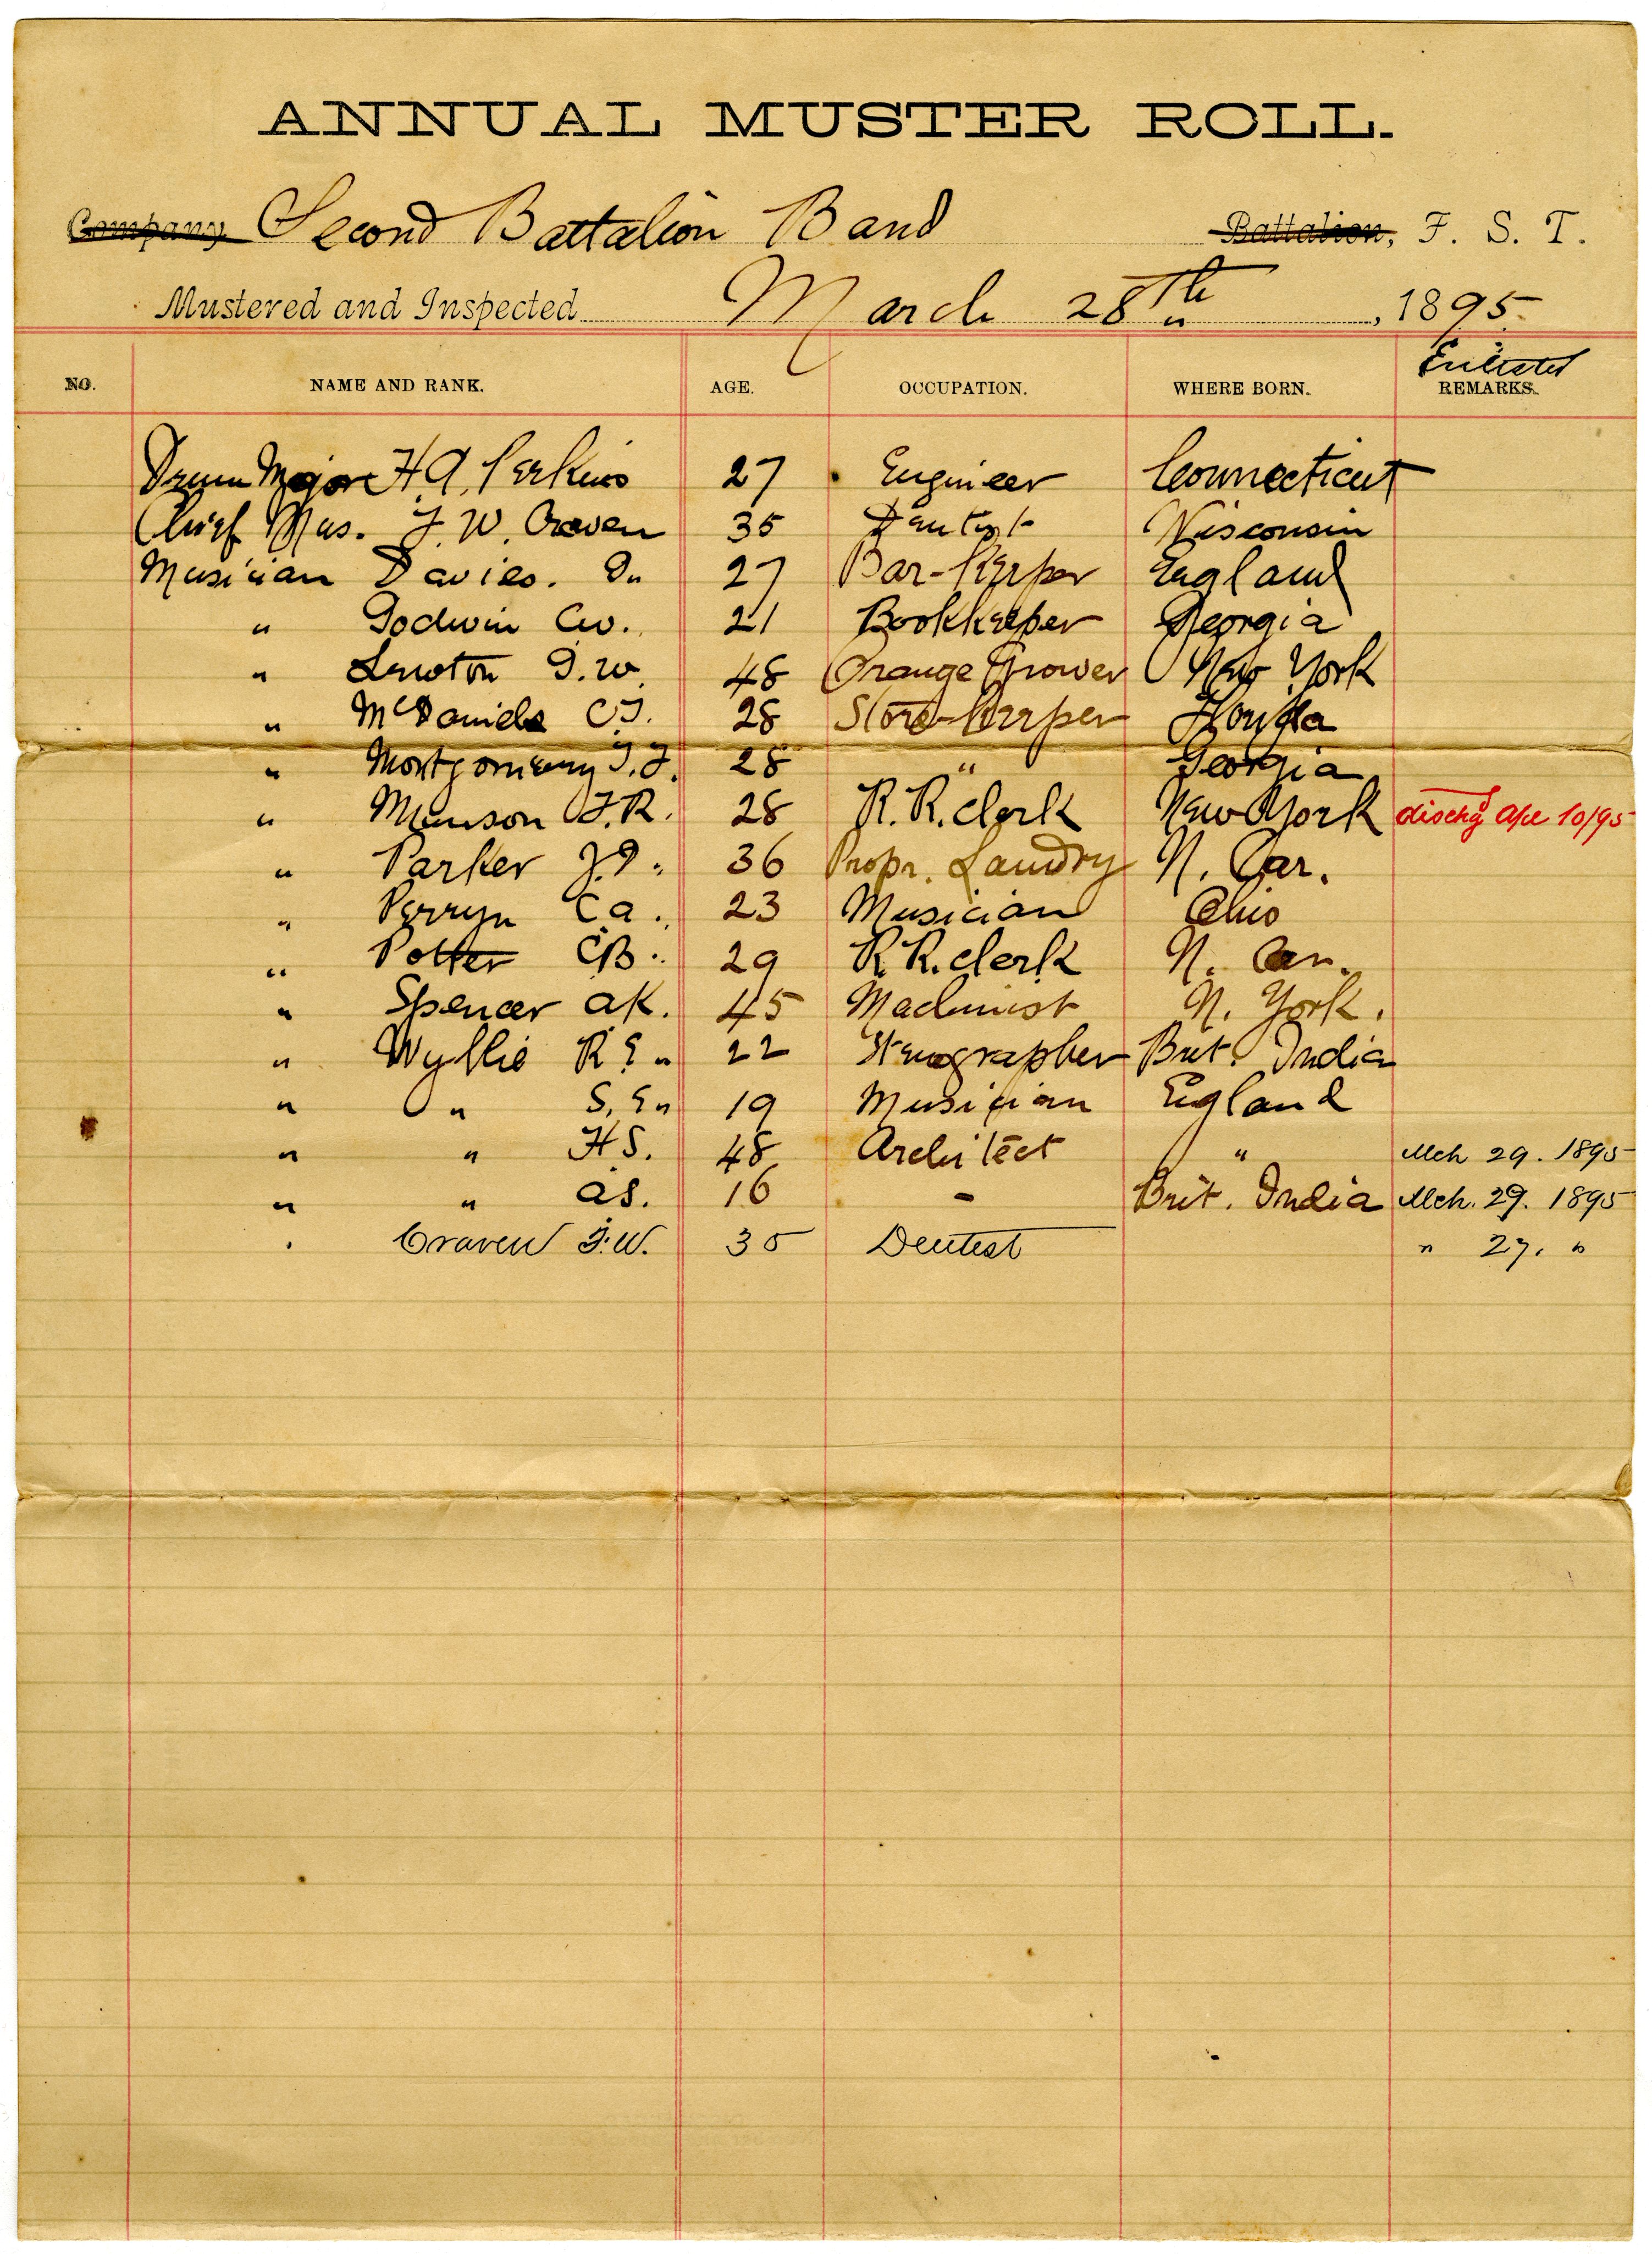 ANNUAL MUSTER ROLL.
Company Second Battalion Band Battalion, F. S. T.
Mustered and Inspected March 28th, 1895
Enlisted
NO. NAME AND RANK. AGE. OCCUPATION. WHERE BORN. REMARKS.
Drum Major H.A. Perkins 27 Engineer Connecticut
Chief Mus. F. W. Craven 35 Dentist Wisconsin
Musician Davies. D 27 Bar-Keeper England
" Godwin C.W. 21 Bookkeeper Georgia
" G.W. 48 Orange Grower New York
" McDaniels C.J. 28 Store-Keeper Florida
" Montgomery 28 " Georgia
" Munson F.R. 28 R.R. Clerk New York dischgd Apl 10/95
" Parker 36 Propr. Laudry N. Car.
" Perryn C.a. 23 Musician Ohio
" Potter C.B. 29 R.R. Clerk N. Car.
" Spencer a.K. 45 Machinist N. York.
" Wyllie R. E. 22 Stenographer Brit. India
" " S. E. 19 Musician England
" " H S. 48 Architect " Mch 29. 1895
" " a.S. 16 - Brit. India Mch. 29. 1895
" Craven F.W. 35 Dentest " 27. "